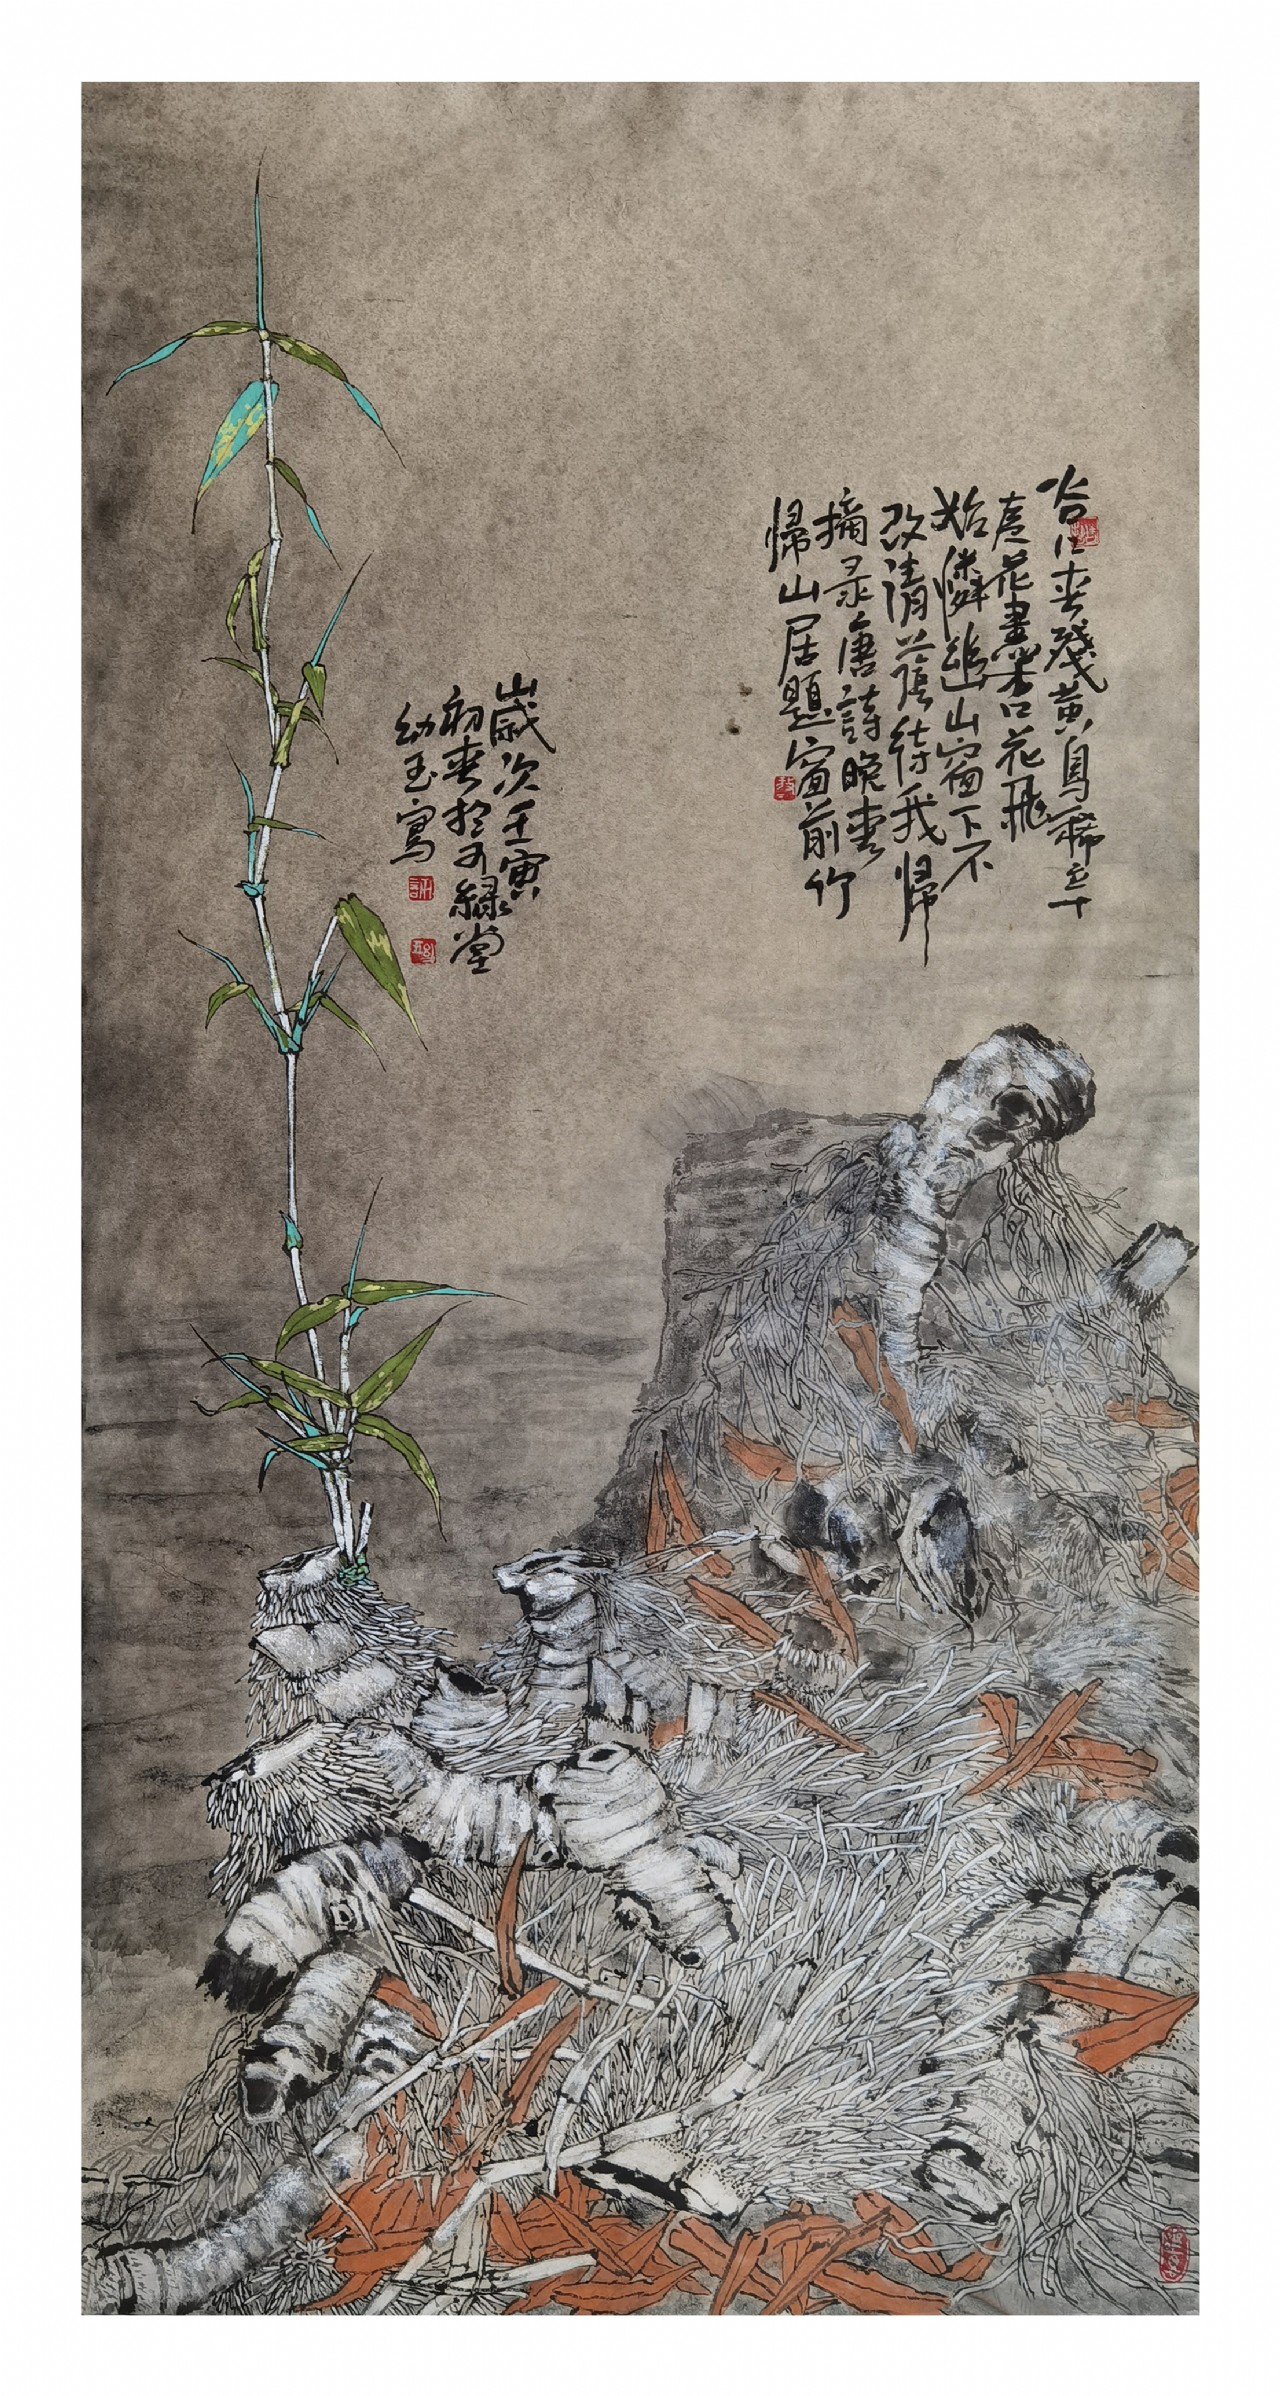 谷口春殘黃鳥稀辛
夷花盡杏花飛
始憐幽山窗下不
改清陰待我歸
摘录唐詩晚春
歸山居題窗前竹
歲次壬寅
初春於可緑堂
幼玉寫